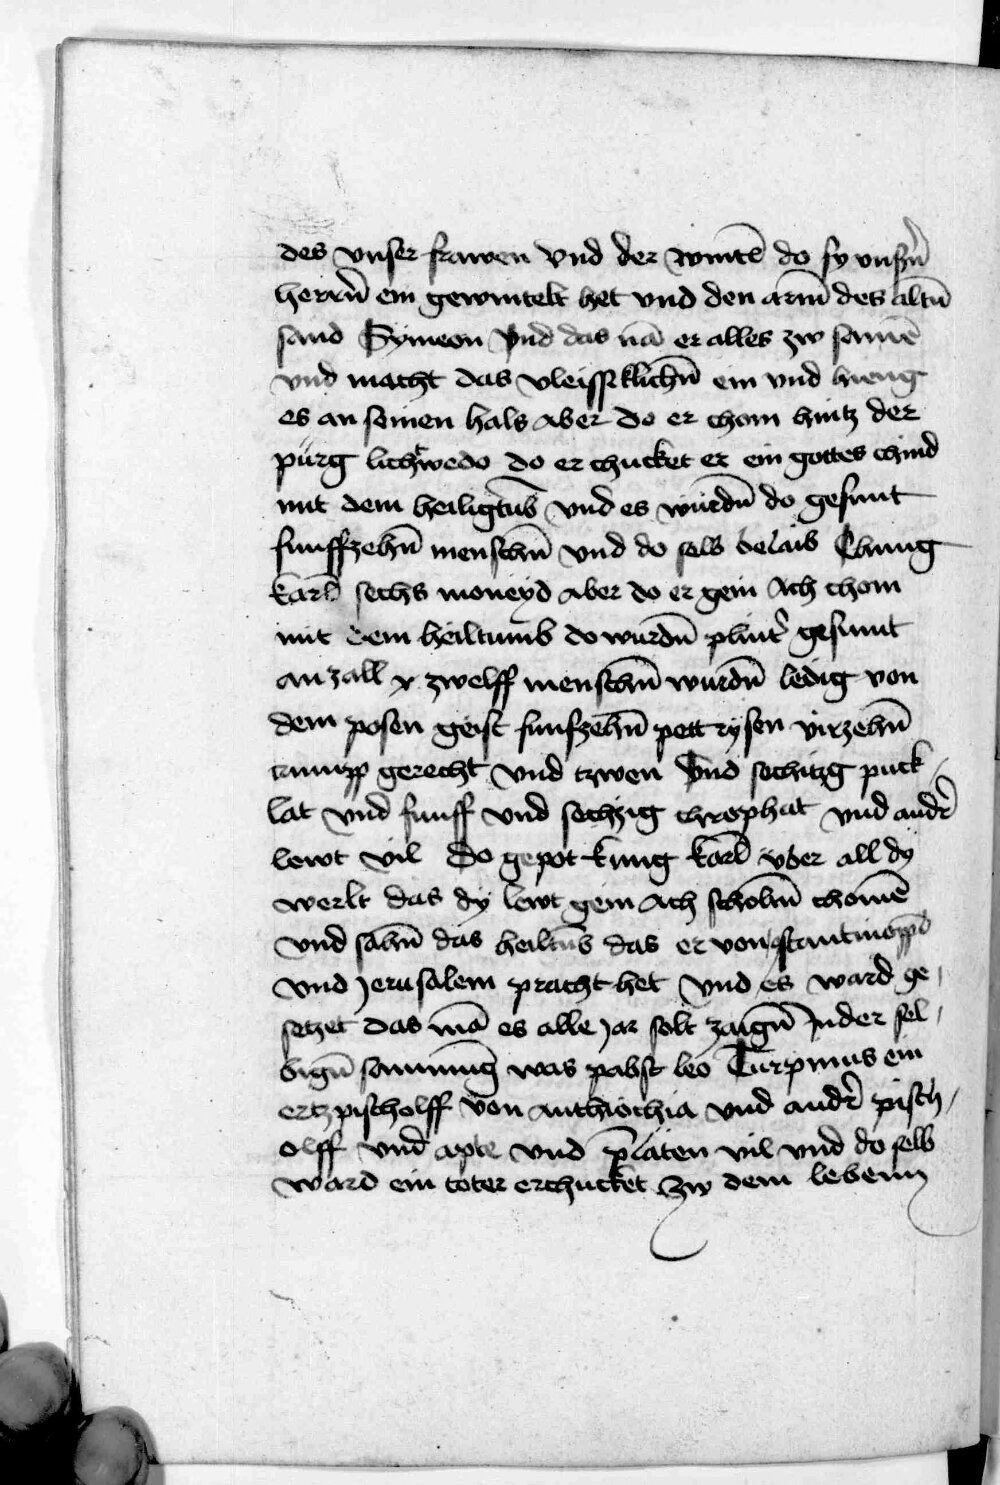 des vnser frawen vnd der wintē do sy vnsꝛ̄n
herrn̄ ein gewintelt het vnd den arm̄ des altn̄
sand Symeon vnd das nā er alles zw samē
vnd macht das vleissiklichn̄ ein vnd hieng
es an seinen hals aber do er chom hintz der
pürg lichwedo do er chucket er ein gottes chind
mit dem heiligtūb vnd es würdn̄ do gesunt
funffzehn̄ menschn̄ vnd do selb belaib Chung
karl sechs moneyd aber do er gein Ach chom
mit dem heiltumb do wurdn̄ plintꝛ̄ gesunt
an zall x zwelff menschn̄ wurdn̄ ledig von
dem posen geist funfzehn̄ pett rysen virzehn̄
krumpp gerecht vnd tzwen vnd sechtzg puck-
lat vnd funff vnd sechzig chrophat vnd andꝛ̄
lewt vil Do gepot kung karl vber all dy
werlt das dy lewt gein Ach scholn̄ chomē
vnd sahn̄ das heiltūb das er von ꝯstantinoppl̄
vnd Jerusalem pracht het vnd es ward ge-
setzet das mā es alle Jar solt zaign̄ In der sel-
bign̄ samnūg was pabst leo Turpinus ein
ertzpischolff von anthiochia vnd andꝛ̄ pisch-
olff vnd apte vnd p̄laten vil vnd do selb
ward ein toter erchucket zw dem lebenn